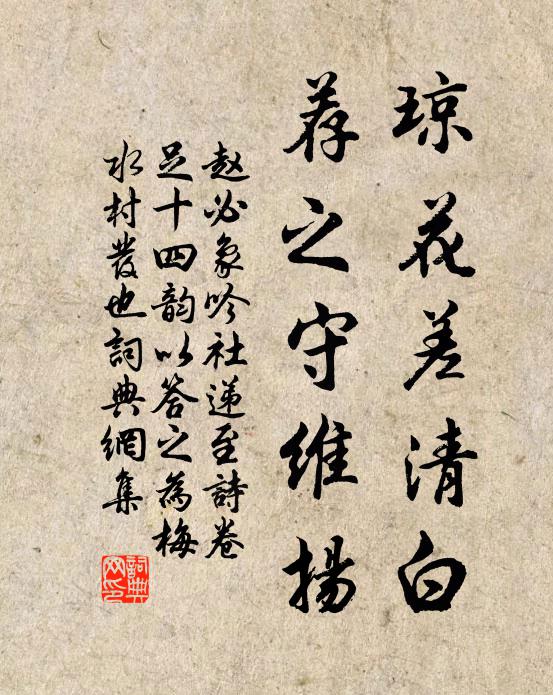 琼花差清白
荐之守维揚
赵必象吟社递至詩卷
足十四韵以答之為梅
水村發也詞典網集
詞典网印